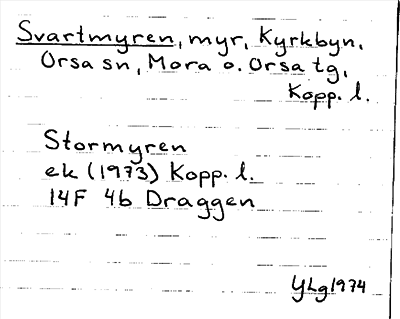 Svartmyren, myr, Kyrkbyn,
Orsa sn, Mora o. Orsa tg,
Kopp. l.
Stormyren
ek (1973) Kopp. l.
14F 4b Draggen
YLg 1974